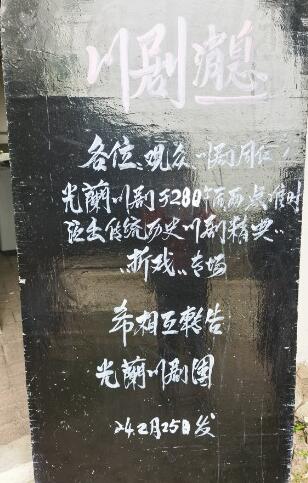 川剧消息
各位观众川剧同仁！
光兰川剧于28日下午两点准时
演出传统历史川剧精典
"折戏"专场
希相互转告
光兰川剧团
24.2月25日发